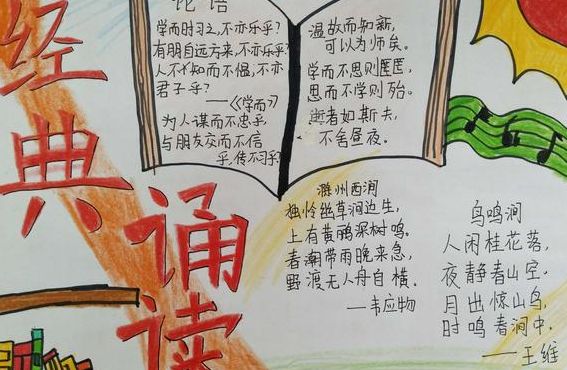 经典诵读
论语
学而时习之,不亦乐乎?
有朋自远方来,不亦乐乎?
人不知而不愠,不亦
君子乎?
——《学而》
为人谋而不忠乎,
与朋友交而不信
乎,传不习乎
温故而知新,
可以为师矣。
学而不思则
思而不学则殆。
逝者如斯夫,
不舍昼夜。
滁州西涧
独怜幽草涧边生,
上有黄鹂深树鸣。
春潮带雨晚来急,
野渡无人舟自横。
——韦应物
鸟鸣涧
人闲桂花落,
夜静春山空。
月出惊山鸟,
时鸣春涧中。
——王维